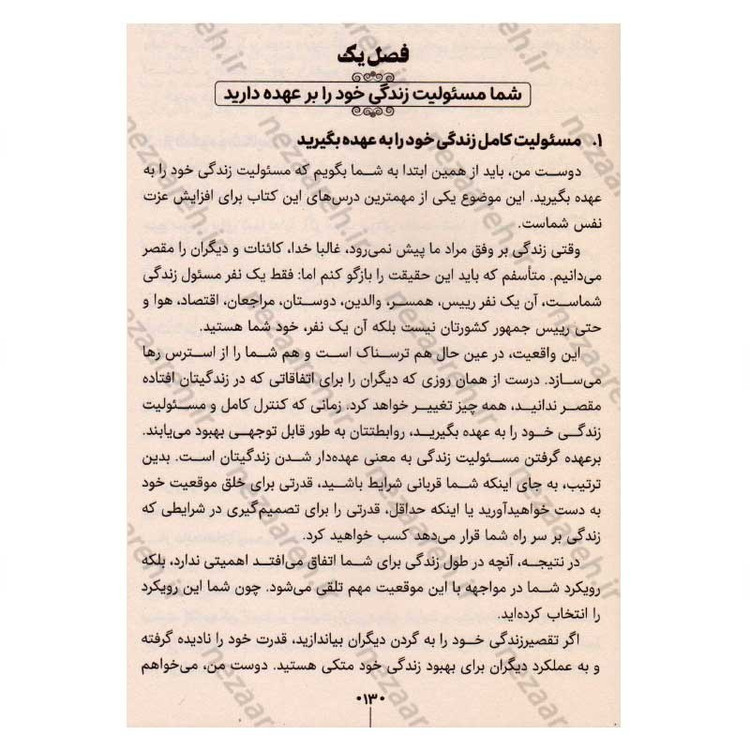 فصل یک
شما مسئولیت زندگی خود را بر عهده دارید
۱. مسئولیت کامل زندگی خود را به عهده بگیرید
دوست من، باید از همین ابتدا به شما بگویم که مسئولیت زندگی خود را به
عهده بگیرید. این موضوع یکی از مهمترین درس‌های این کتاب برای افزایش عزت
نفس شماست.
وقتی زندگی بر وفق مراد ما پیش نمی‌رود، غالبا خدا، کائنات و دیگران را مقصر
می‌دانیم. متأسفم که باید این حقیقت را بازگو کنم اما: فقط یک نفر مسئول زندگی
شماست، آن یک نفر رییس، همسر، والدین، دوستان، مراجعان، اقتصاد، هوا و
حتی رییس جمهور کشورتان نیست بلکه آن یک نفر، خود شما هستید.
این واقعیت، در عین حال هم ترسناک است و هم شما را از استرس رها
می‌سازد. درست از همان روزی که دیگران را برای اتفاقاتی که در زندگیتان افتاده
مقصر ندانید، همه چیز تغییر خواهد کرد. زمانی که کنترل کامل و مسئولیت
زندگی خود را به عهده بگیرید، روابطتتان به طور قابل توجهی بهبود می‌یابند.
برعهده گرفتن مسئولیت زندگی به معنی عهده‌دار شدن زندگیتان است. بدین
ترتیب، به جای اینکه شما قربانی شرایط باشید، قدرتی برای خلق موقعیت خود
به دست خواهیدآورید یا اینکه حداقل، قدرتی را برای تصمیم‌گیری در شرایطی که
زندگی بر سر راه شما قرار می‌دهد کسب خواهید کرد.
در نتیجه، آنچه در طول زندگی برای شما اتفاق می‌افتد اهمیتی ندارد، بلکه
رویکرد شما در مواجهه با این موقعیت مهم تلقی می‌شود. چون شما این رویکرد
را انتخاب کرده‌اید.
اگر تقصیرزندگی خود را به گردن دیگران بیاندازید، قدرت خود را نادیده گرفته
و به عملکرد دیگران برای بهبود زندگی خود متکی هستید. دوست من، می‌خواهم
۰۱۳۰
nezaareh.ir